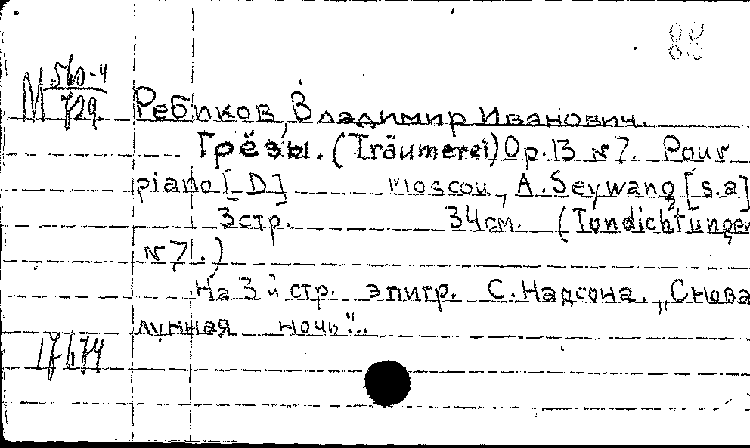 М 560-4
729
Ребиков, Владимир Иванович.
Грёзы. (Träumerei) Op. 13 № 7. Pour
piano [_D_] Moscou, A. Seywang [s.a]
3 стр. 34 см. (Tondichtungen
№ 7.)
На 3й стр. эпигр. С. Надсона. „Снова
лунная ночь"..
17674